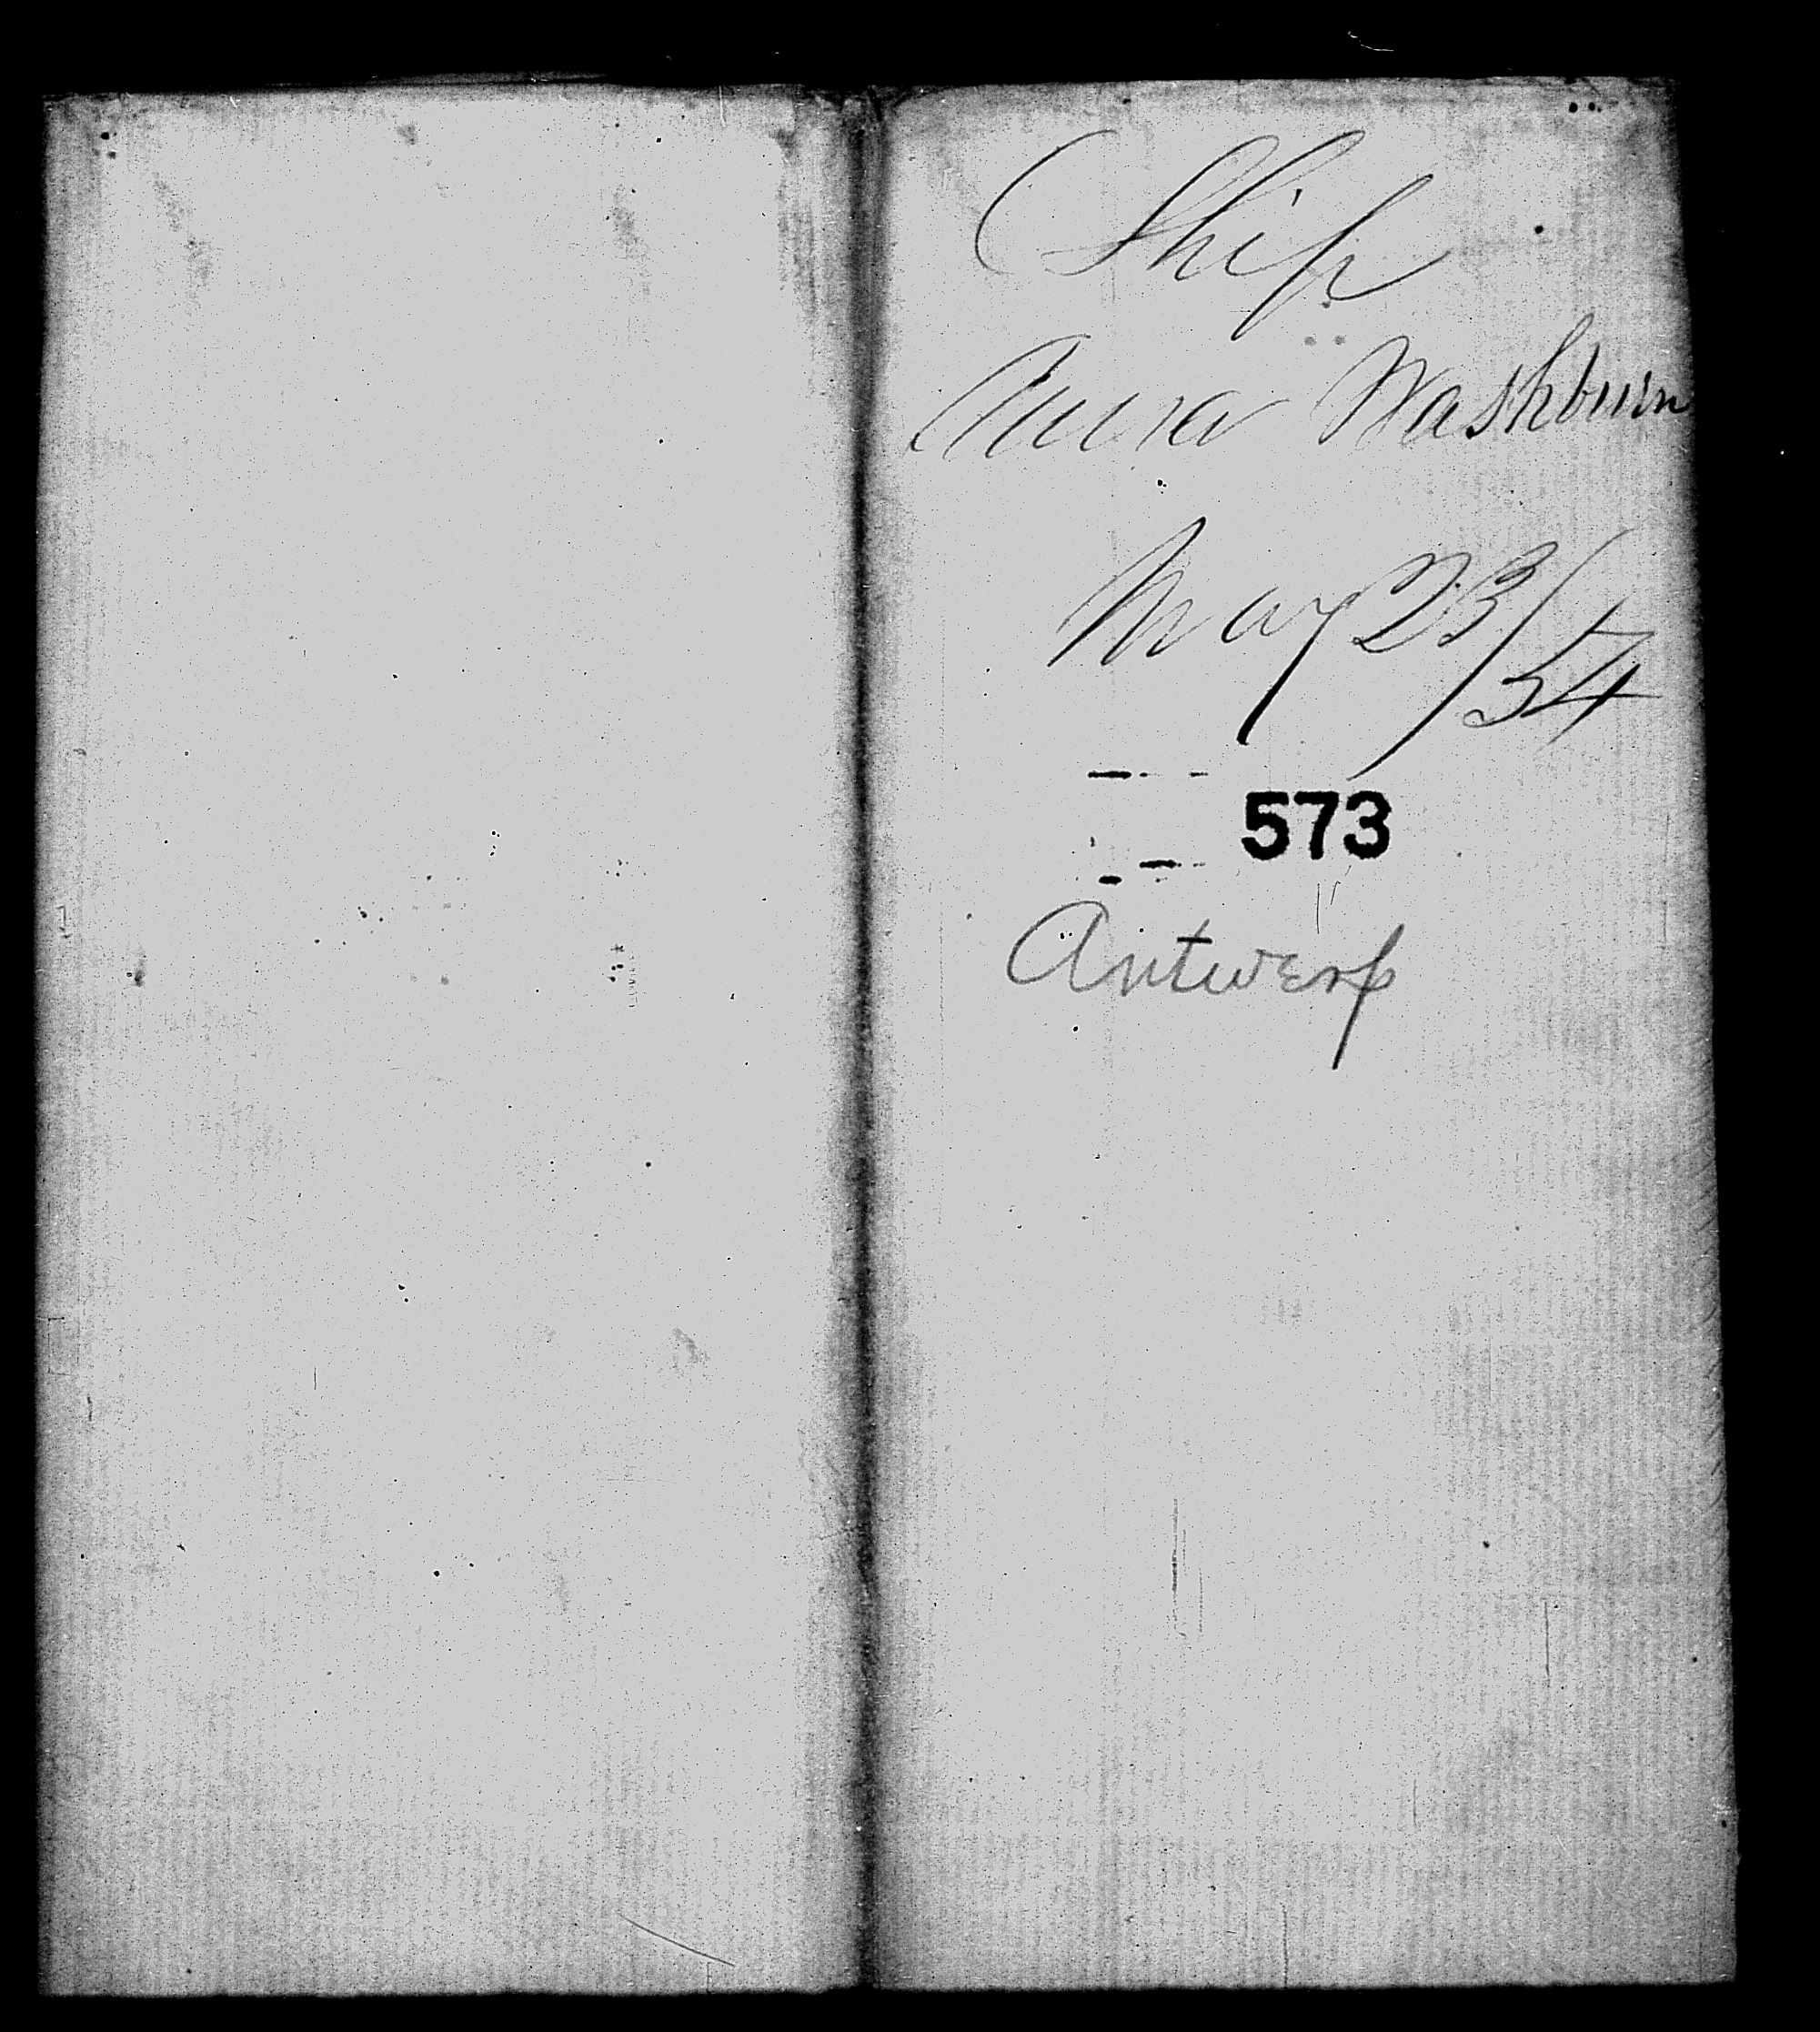 Ship
Anna Washburn
May 23/54
573
Antwerp